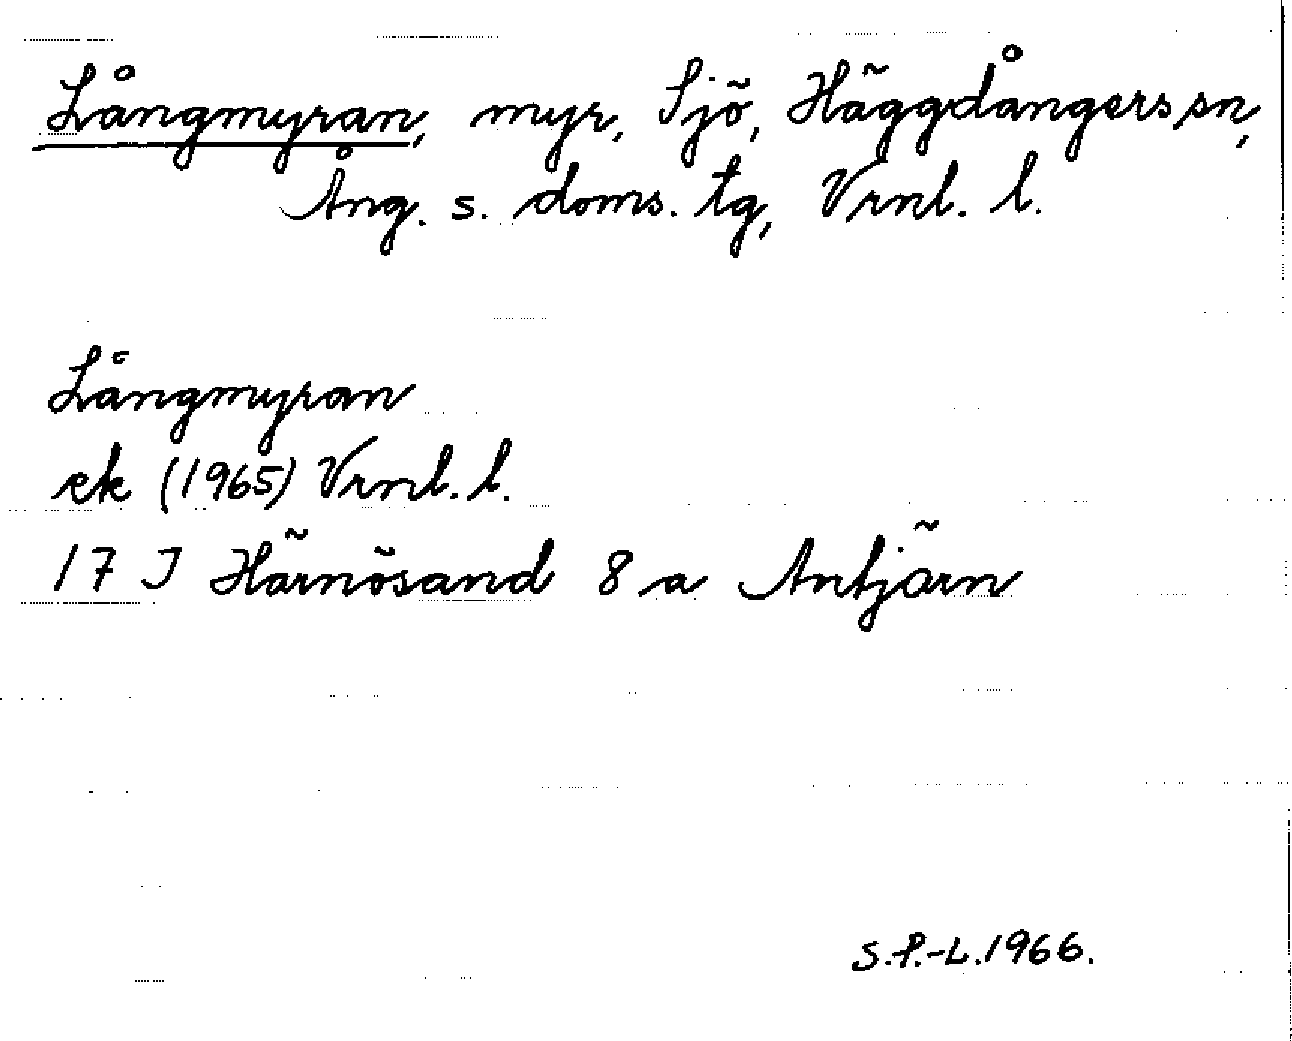 Långmyran, myr, Sjö, Häggdångers sn,
Ång. s. doms. tg, Vrnl. l.
Långmyran
ek (1965) Vrnl. l.
17 J Härnösand 8 a Antjärn
S.P.-L.1966.